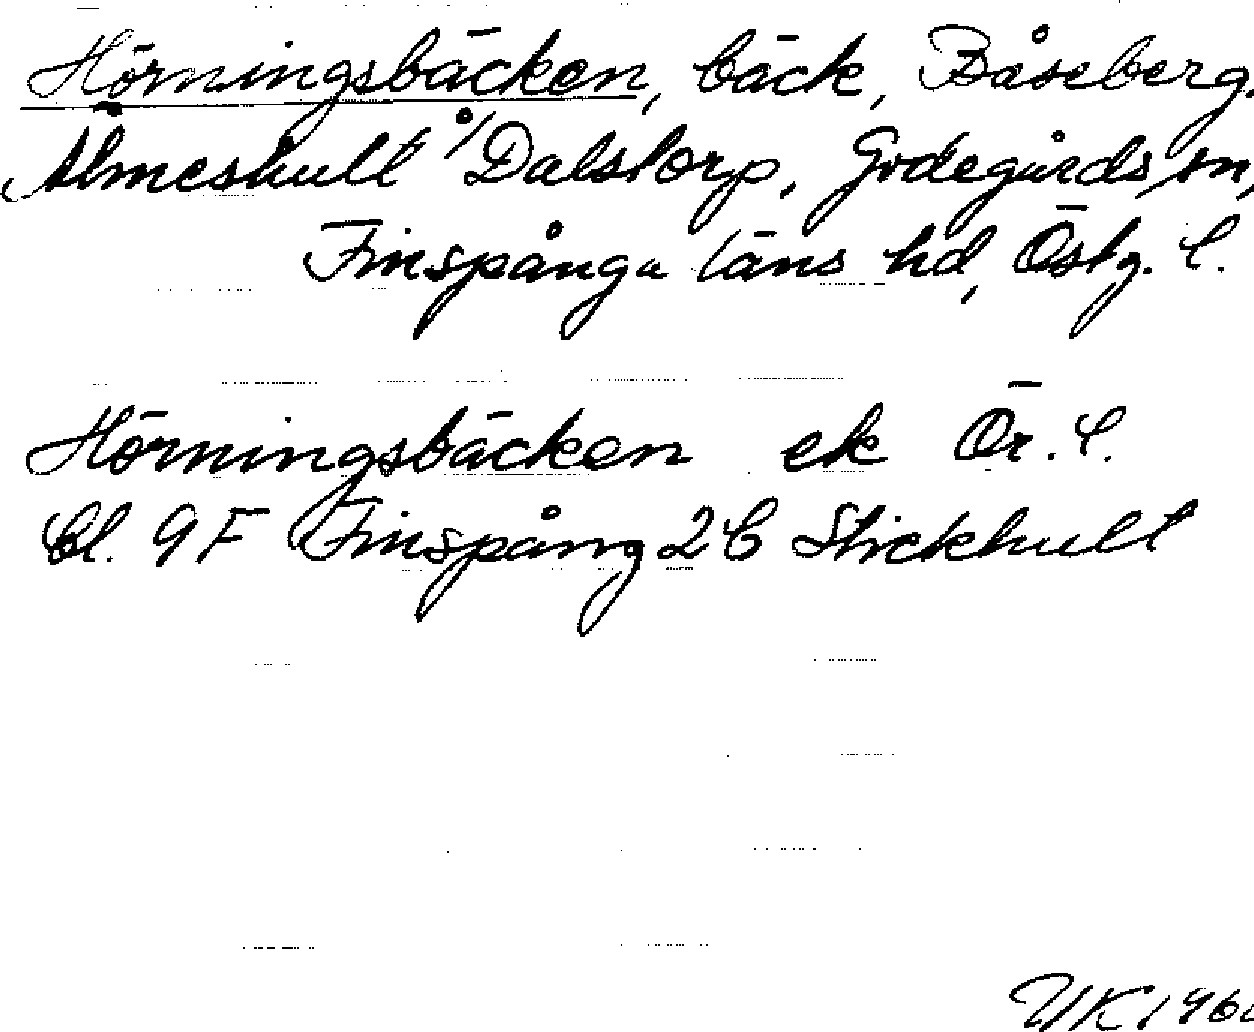 Hörningsbäcken, bäck, Båseberg.
Älmeshult o/ Dalstorp, Godegårds sn,
Finspånga läns hd, Östg. l.
Hörningsbäcken ek Ör. l.
bl. 9F Finspång 2b Stickhult
UK 196